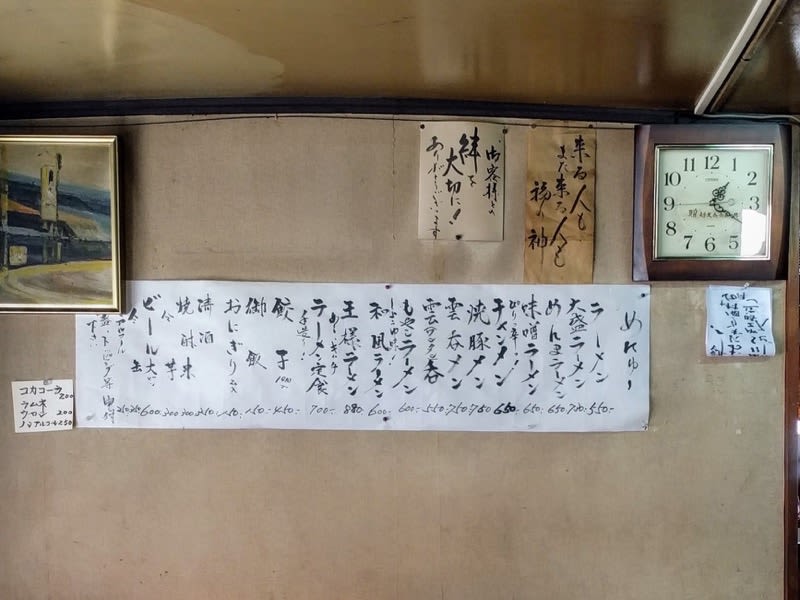 御客様との
絆を
大切に!!
ありがとうございます
来る人も
また来る人も
福の神
めにゅー
ラーメン 550-
大盛ラーメン 700-
めんまラーメン 650
味噌ラーメン 650-
ぴりっ辛!!
チャンメン 650-
焼豚メン 750
雲呑メン 750-
雲呑 550-
もやしラーメン 600-
和風ラーメン 600-
王様ラーメン 880
ラーメン定食 700-
手造り!!
餃子 450-
御飯 150-
おにぎり 150-
清酒 350
焼酎米 300
〃芋 300
ビール大 600
〃缶 350
コカコーラ 200
ラムネ
ウーロン 200
ノンアルコール 250
10 11 12 1
9 2
8 3
7 6 5 4